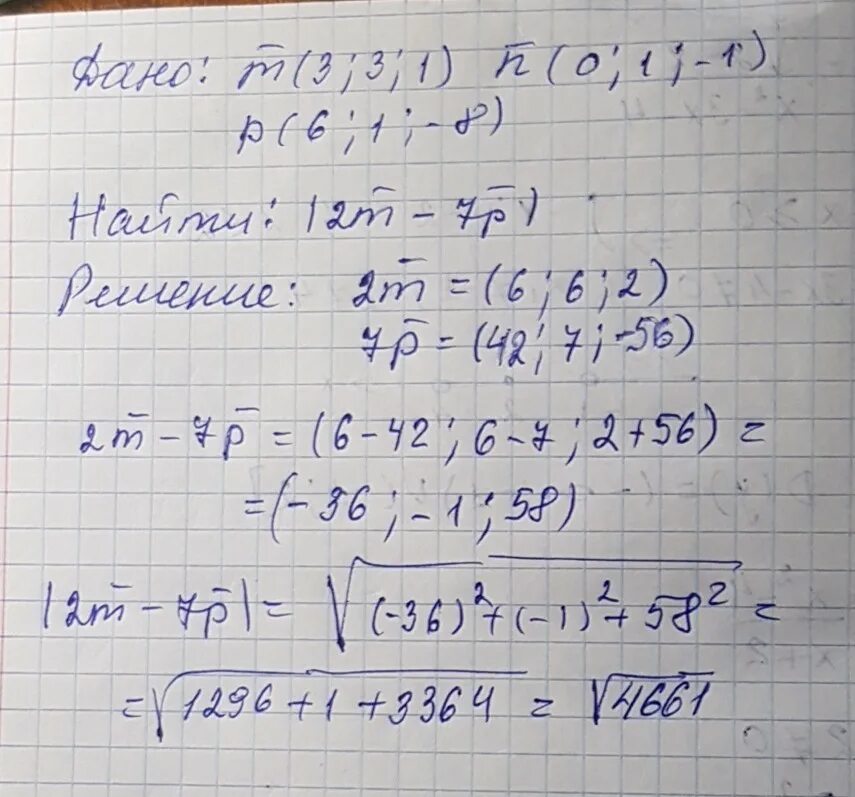 Дано: m̅(3; 3; 1) n̅(0; 1; -1)
p(6; 1; -8)
Найти: |2m̅ - 7p̅|
Решение: 2m̅ = (6; 6; 2)
7p̅ = (42; 7; -56)
2m̅ - 7p̅ = (6-42; 6-7; 2+56) =
= (-36; -1; 58)
|2m̅ - 7p̅| = √((-36)² + (-1)² + 58²) =
= √(1296 + 1 + 3364) = √4661